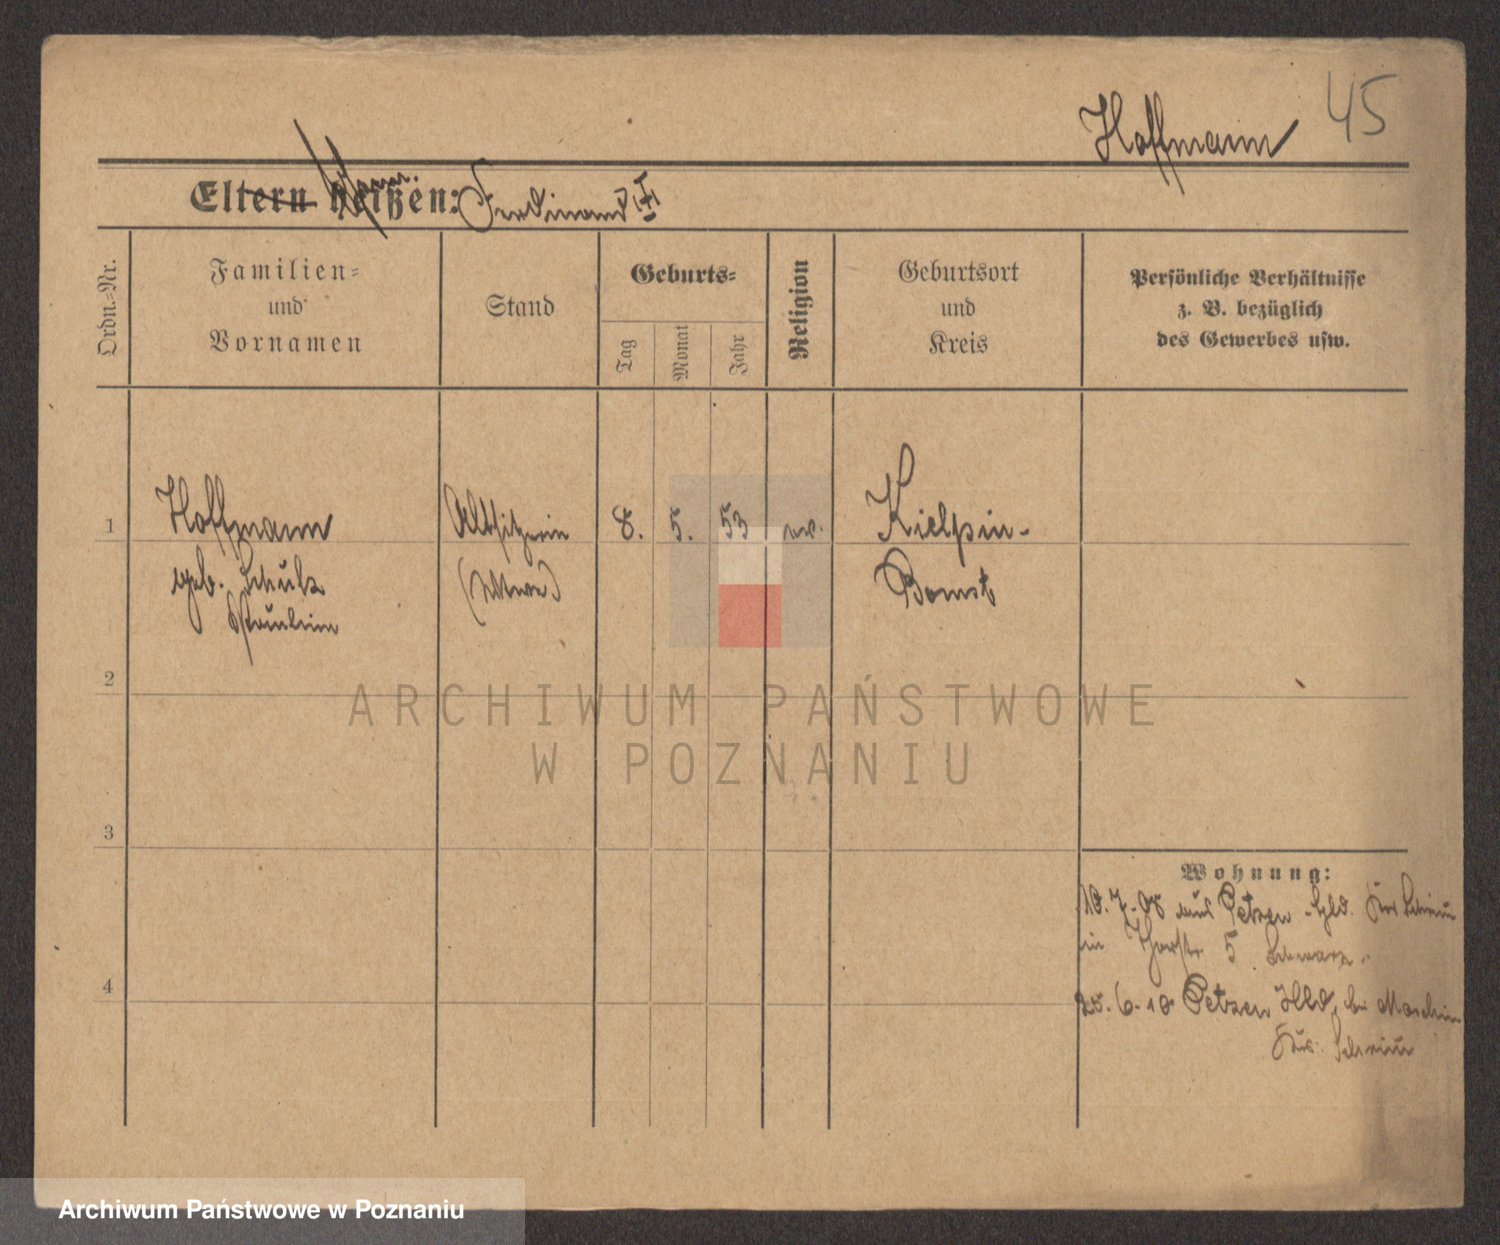 45
Hoffmann
Eltern heißen: Ferdinand (†)
Ordn.=Nr.
Familien=
und
Vornamen
Stand
Geburts=
Tag
Monat
Jahr
Religion
Geburtsort
und
Kreis
Persönliche Verhältnisse
z. B. bezüglich
des Gewerbes usw.
1
Hoffmann
geb. Schulz
Pauline
Altsitzerin
(Witwe)
8.
5.
53
ev.
Kielpin-
Bomst
2
3
4
Wohnung:
10.7.08 aus Petzen Hld. Krs Schrimm
in Thorstr. 5 Schwarz.
25.6.10 Petzen Hld. bei Moschin
Krs. Schrimm
ARCHIWUM PAŃSTWOWE
W POZNANIU
Archiwum Państwowe w Poznaniu